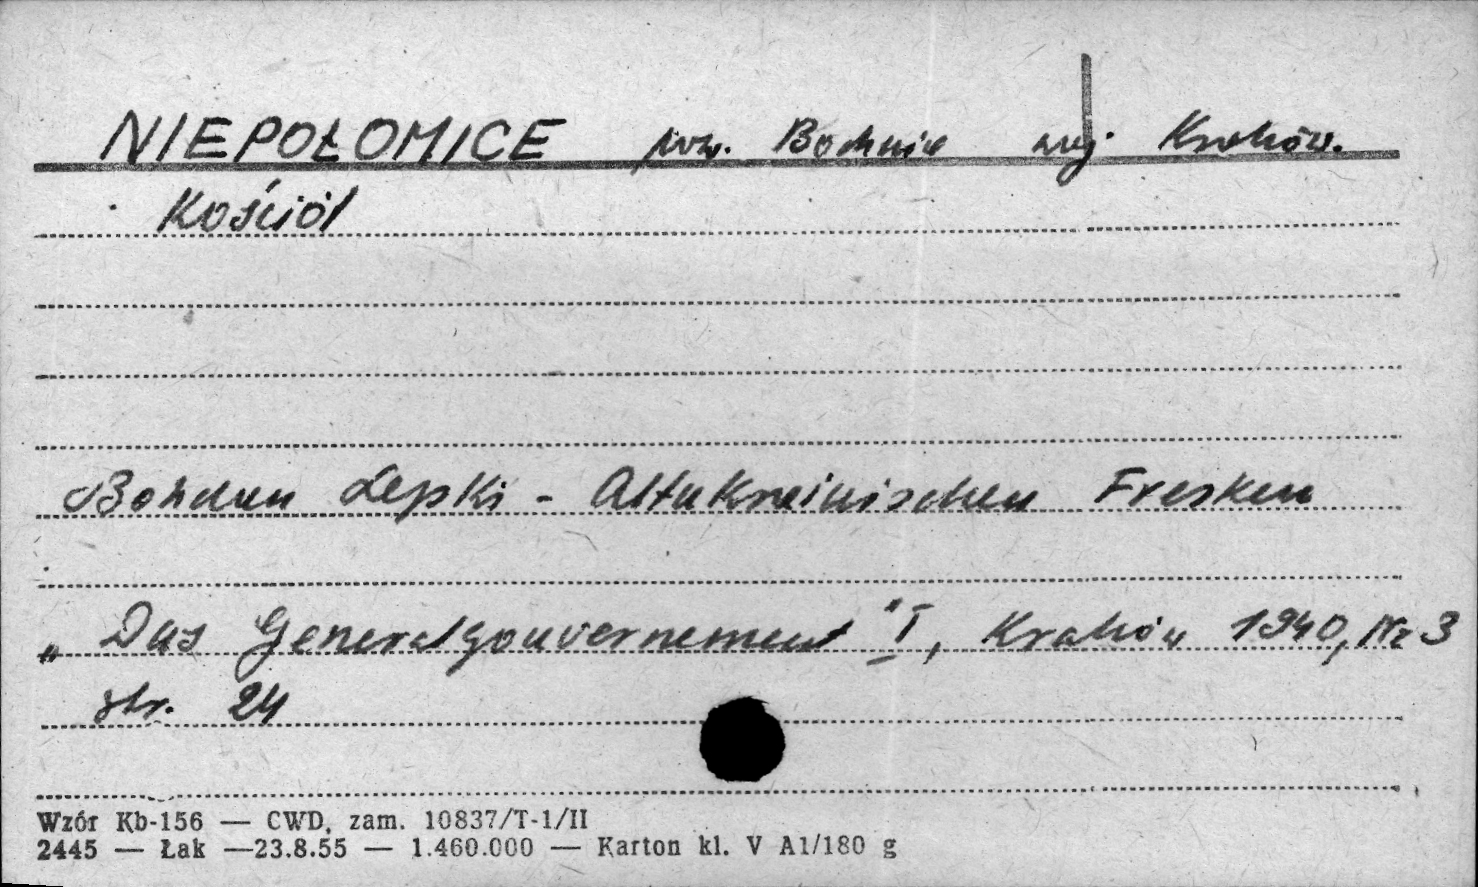 NIEPOŁOMICE pow. Bochnia woj. Kraków.
Kościół
Bohdan Lepki - Altukrainischen Fresken
„Das Generalgouvernement" I, Kraków 1940, Nr 3
str. 24
Wzór Kb-156 — CWD, zam. 10837/T-1/II
2445 — Łak —23.8.55 — 1.460.000 — Karton kl. V A1/180 g